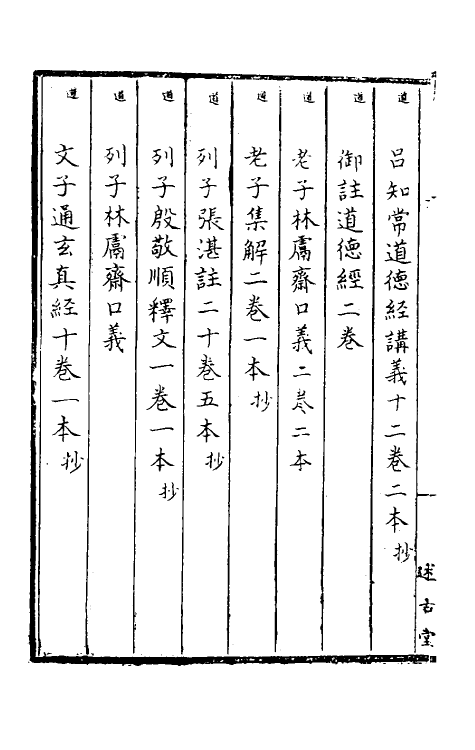 道 呂知常道德経講義十二卷二本抄
道 御註道德経二卷
道 老子林鬳齋口義二卷二本
道 老子集解二卷一本抄
道 列子張湛註二十卷五本抄
道 列子殷敬順釋文一卷一本抄
道 列子林鬳齋口義
道 文子通玄真経十卷一本抄
述古堂